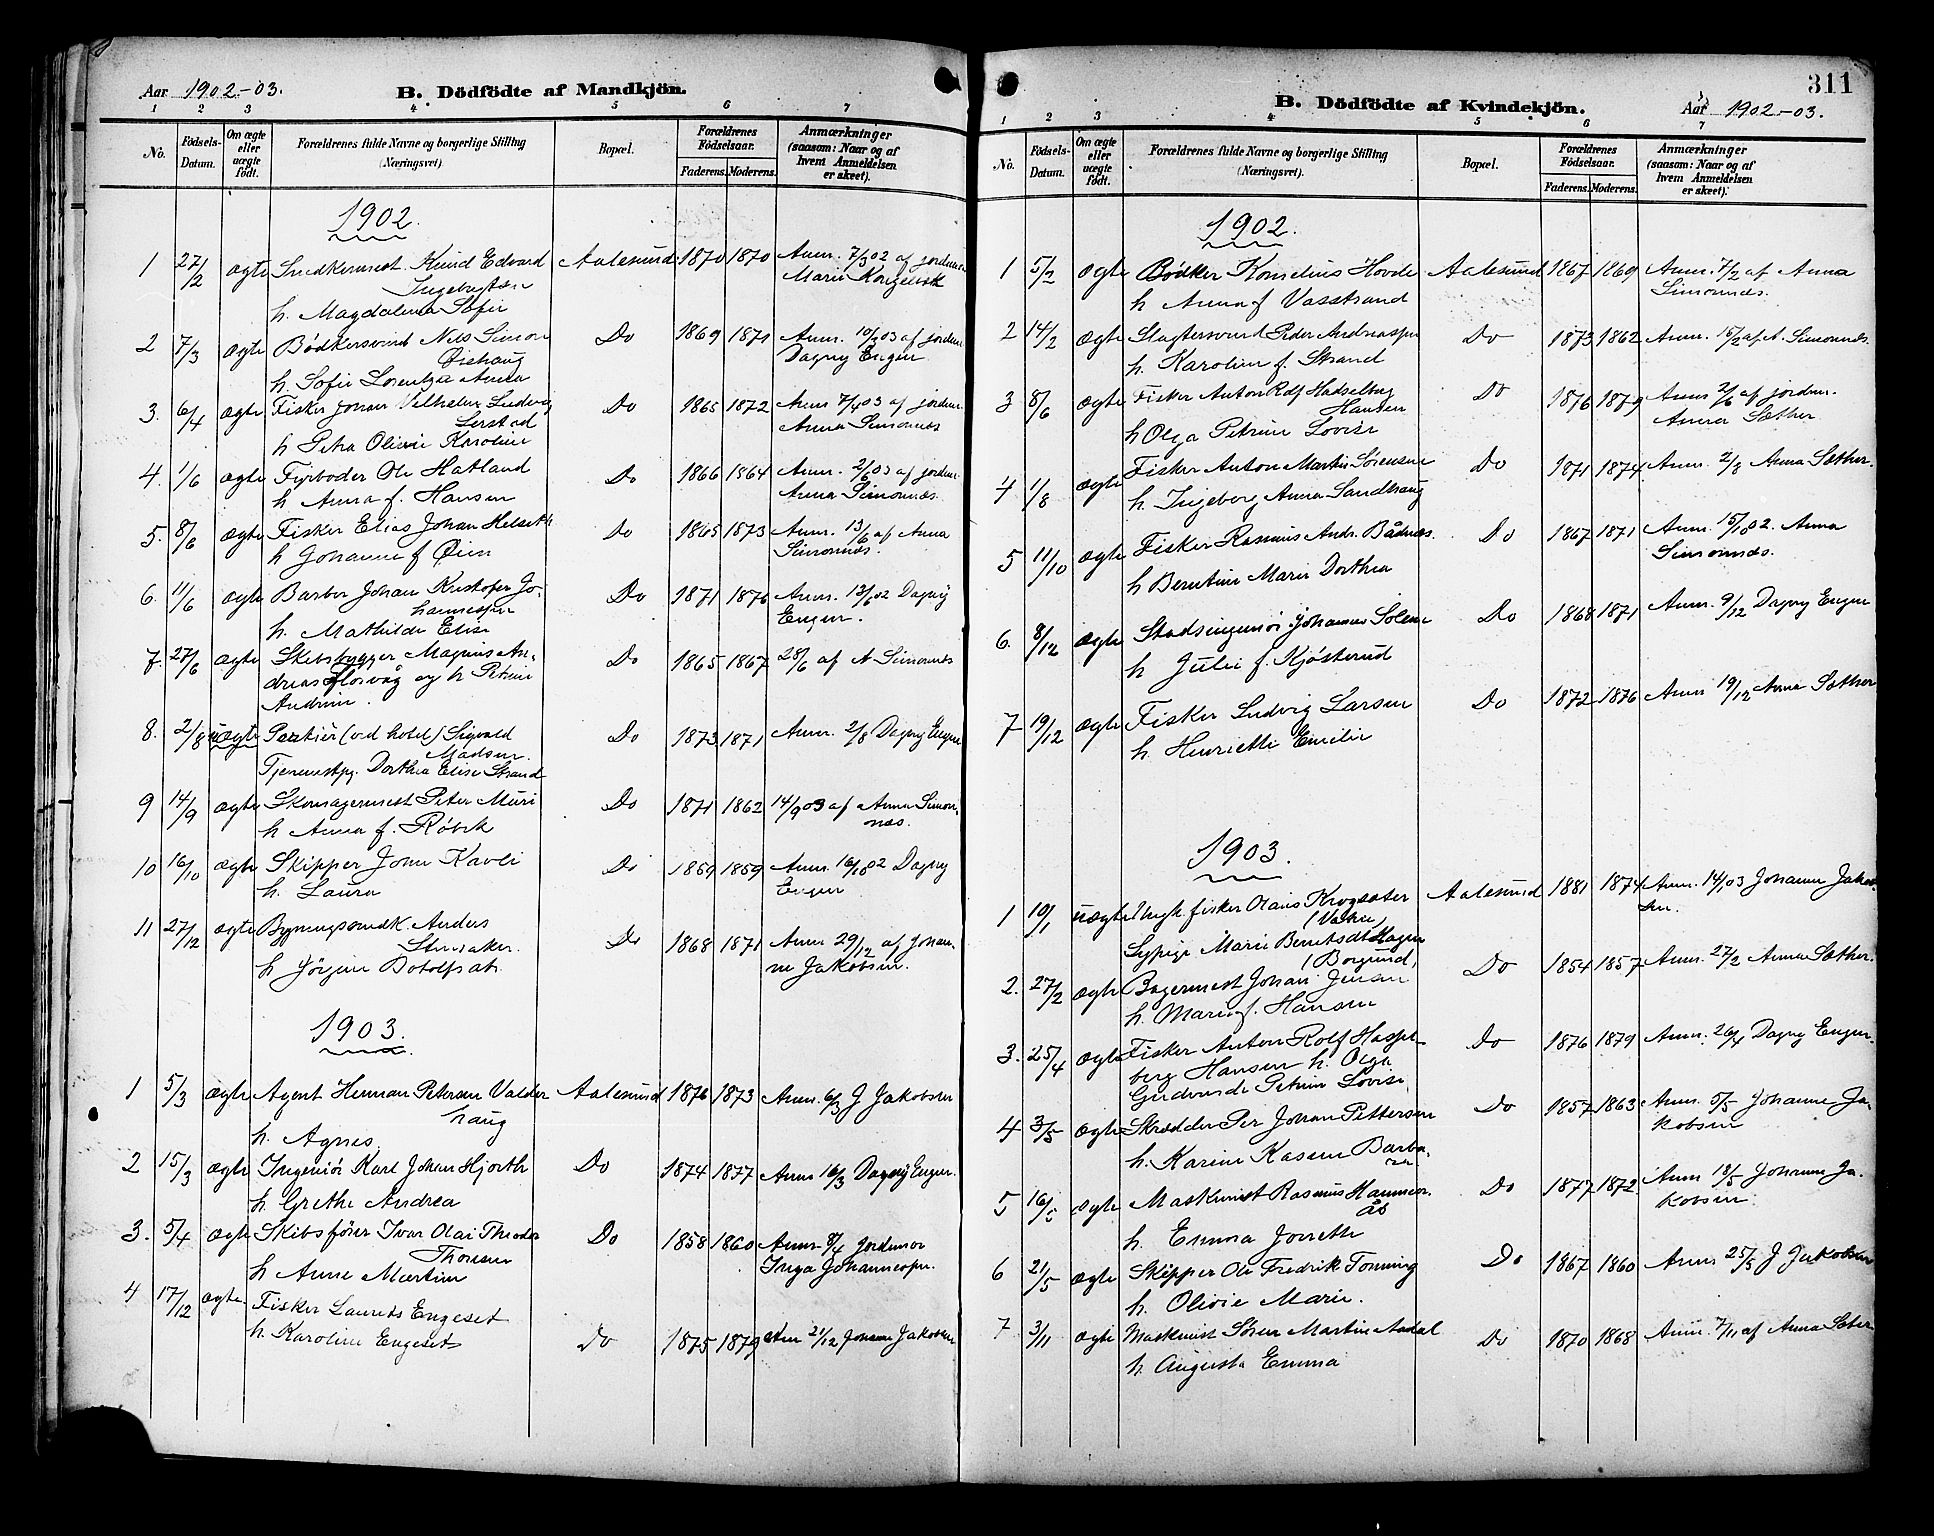 Aar 1902-03.
B. Dödfödte af Mandkjön.
1 2 3 4 5 6 7
No.
Födsels-Datum.
Om ægte eller uægte födt.
Forældrenes fulde Navne og borgerlige Stilling (Næringsvei).
Bopæl.
Forældrenes Födselsaar.
Faderens. Moderens.
Anmærkninger (saasom: Naar og af hvem Anmeldelsen er skeet).
1902.
1 27/2 ægte Snedkermest. Knud Edvard Aalesund 1870 1870 Anm. 7/3 02 af jordem.
h. Magdalena Sofie
2 7/3 ægte Bödkersvend Nils Simon Do 1869 1871 Anm. 10/3 03 af jordm.
Dagny Engen
h. Sofie Lorentza Anna
3. 6/4 ægte Fisker Johan Vilhelm Ludvig Do 1865 1872 Anm 7/4 03 af jordm.
Anna Simonnæs
h Petra Olivie Karoline
4. 1/6 ægte Fyrböder Ole Hatland Do 1866 1864 Anm. 2/6 03 af jordm.
h Anna f. Hansen Anna Simonnæs.
5. 8/6 ægte Fisker Elias Johan Helseth Do 1865 1873 Anm. 13/6 af Anna
h Johanne f Øien Simonnæs.
6. 11/6 ægte Barber Johan Kristofer Jo- Do 1871 1876 Anm. 13/6 02 Dagny
hannessen Engen.
h. Mathilde Elise
7. 27/6 ægte Skibsbygger Magnus An- Do 1865 1867 28/6 af A Simonnæs
dreas Flosvåg og h Petrine
Andrine.
8. 2/8 uægte Portier (ved hotel) Sigvald Do 1873 1871 Anm. 2/8 Dagny Engen
Madsen.
Tjenestpg. Dorthea Elise Strand
9 14/9 ægte Skomagermest Peter Muri Do 1871 1862 14/9 03 af Anna Simon-
h Anna f. Røbek næs.
10 16/10 ægte Skipper John Kavli Do 1859 1859 Anm. 16/10 02 Dagny
h. Laura Engen
11 27/12 ægte Bygningssnedk. Anders Do 1868 1871 Anm 29/12 af Johan-
ne Jakobsen.
h Jörgine
1903.
1 5/3 ægte Agent Herman Petersen Valder Aalesund 1876 1873 Anm. 6/3 J Jakobsen
haug
h. Agnes
2 15/3 ægte Ingeniör Karl Johan Hjorth Do 1874 1877 Anm 16/3 Dagny Engen.
h. Grethe Andrea
3. 5/4 ægte Skibsförer Ivar Olai Theodor Do 1858 1860 Anm. 8/4 Jordemor
Thoresen Inga Johannessen.
h Anne Martine
4 17/12 ægte. Fisker Laurits Engeset
h. Karoline Engeset Do 1875 1879 Anm 21/12 Johanne Jakobsen
311
B. Dödfödte af Kvindekjön.
Aar 1902-03.
1 2 3 4 5 6 7
No.
Födsels-Datum.
Om ægte eller uægte födt.
Forældrenes fulde Navne og borgerlige Stilling (Næringsvei).
Bopæl.
Forældrenes Födselsaar.
Faderens. Moderens.
Anmærkninger (saasom: Naar og af hvem Anmeldelsen er skeet).
1902.
1 5/2 ægte Bödker Kornelius Hovde Aalesund 1867 1869 Anm. 7/2 af Anna
h Anna f Vasstrand Simonnæs.
2 14/2 ægte Slagtersvend Peder Andreassen Do 1873 1862 Anm. 15/2 af A. Simonnæs.
h. Karoline f. Strand
3 8/6 ægte Fisker Anton Rolf Hadselberg Do 1876 1879 Anm af jordm.
Hansen Anna Sæther
h Olga Petrine Lovise
4 1/8 ægte Fisker Anton Martin Sörensen Do 1871 1874 Anm. 2/8 Anna Sæther.
h. Ingeborg Anna Sandhaug
5 11/10 ægte Fisker Rasmus Andr. Bådnæs Do 1867 1871 Anm. 15/10 02. Anna
h Berntine Marie Dorthea Simonnæs.
6. 8/12 ægte Stadsingeniör Johannes Solem Do 1868 1871 Anm. 9/12 Dagny Engen
h Julie f. Kjösterud
7 19/12 ægte Fisker Ludvig Larsen Do 1872 1876 Anm 19/12 Anna Sæther
h. Henriette Emilie
1903.
1 10/1 uægte Ungk. fisker Olaus Krogsæter Aalesund 1881 1874 Anm. 14/1 03 Johanne Jakob-
sen.
Sypige Marie Berntsdt. Hagen
(Borgund)
2. 27/2 ægte Bagermest Johan Jensen Do 1854 1857 Anm. 27/2 Anna Sæther.
h. Marie f. Hansen
3. 25/4 ægte Fisker Anton Rolf Hassel- Do 1876 1879 Anm. 26/4 Dagny Engen.
berg Hansen h. Olga
Petrine Lovise.
4 3/5 ægte Skrædder Per Johan Pettersen Do 1857 1863 Anm. 5/5 Johanne Ja-
kobsen
h. Karine Kasen Barba-
ra
5 16/5 ægte Maskinist Rasmus Hammers Do 1877 1872 Anm 18/5 Johanne Ja-
kobsen
h. Emma
6 21/5 ægte Skipper Ole Fredrik Tonning Do 1867 1860 Anm 25/5 J Jakobsen
h. Olivie Marie.
7 3/11 ægte Maskinist Sören Martin Aadal Do 1870 1868 Anm. 7/11 af Anna Sæter
h. Augusta Emma